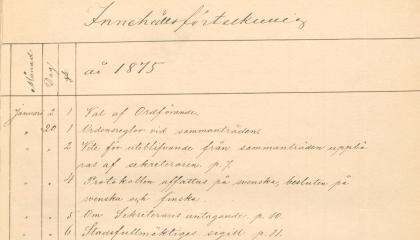 Innehållsförteckning
Månad Dag § år 1875
Januari 2 1 Val af Ordförande.
" 20 1 Ordensreglor vid sammanträden
" " 2 Vite för uteblifvande från sammanträden upplä-
ras af sekreteraren. p. 7.
" " 4 Protokollen affattas på svenska, besluten på
svenska och finska.
" " 5 Om Sekreterares antagande. p. 10.
" " 6 Stadsfullmäktiges sigill p. 11.